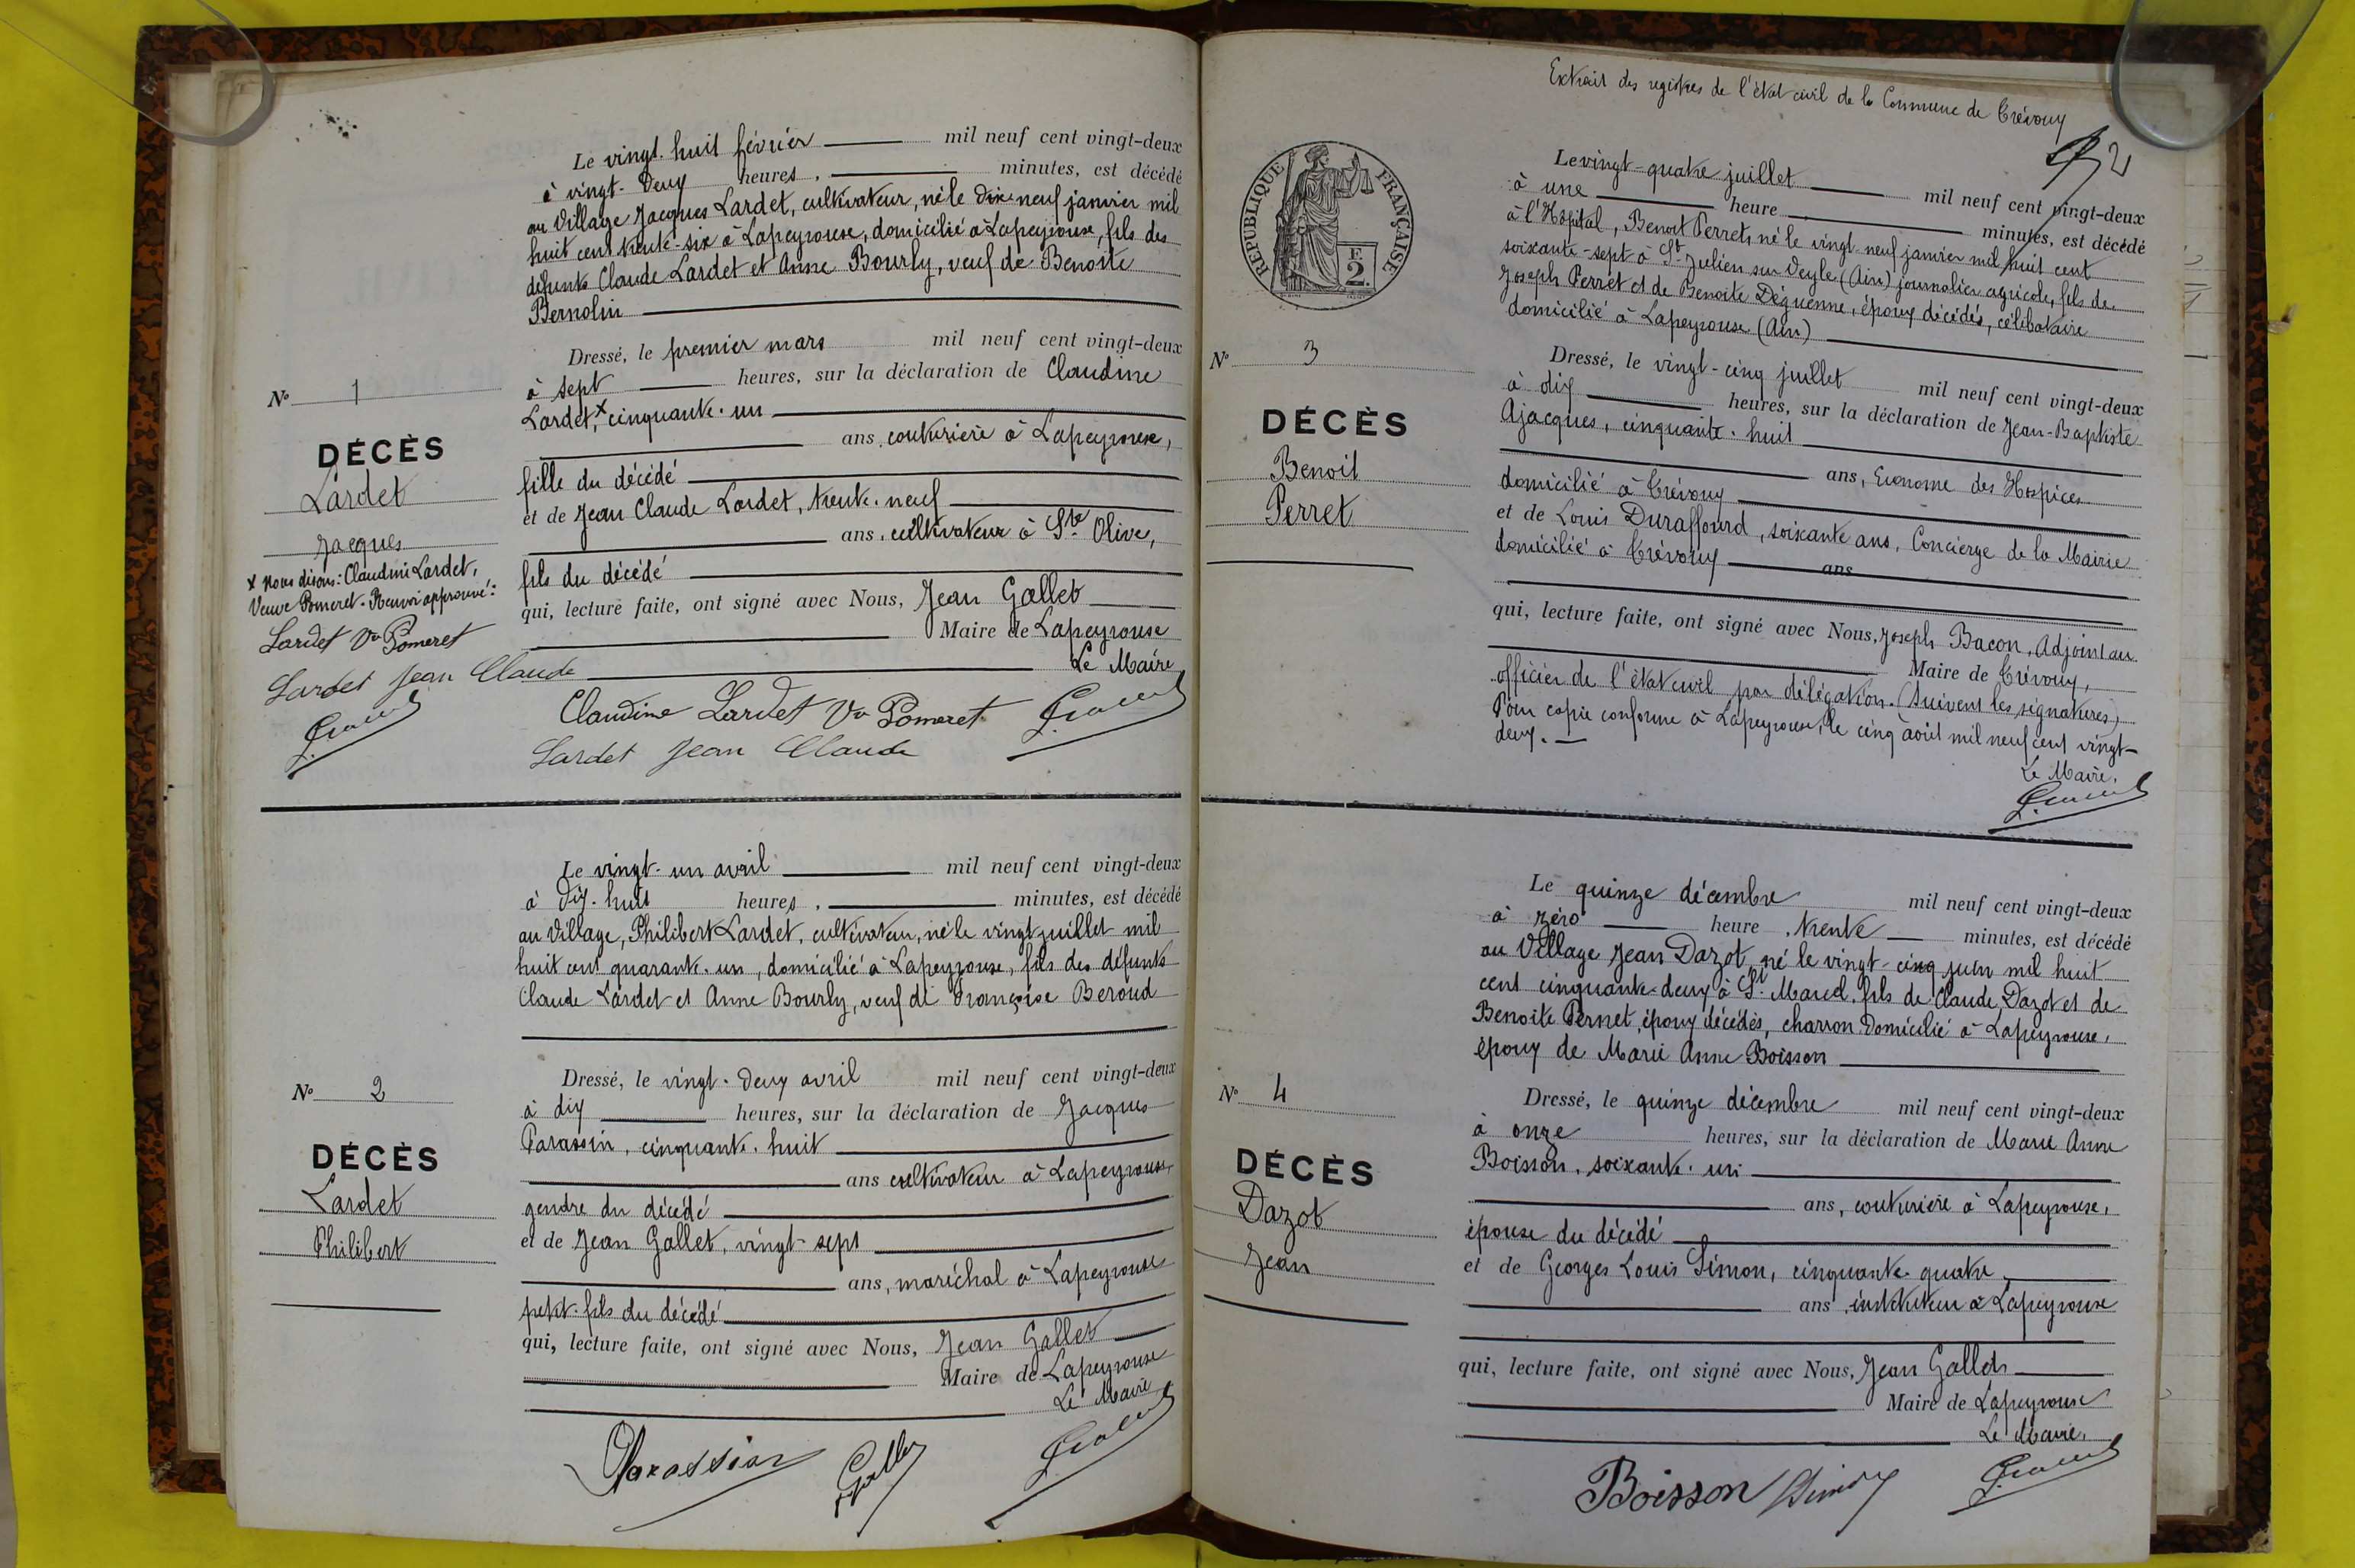 Le vingt-huit février mil neuf cent vingt-deux
à vingt-deux heures, minutes, est décédé
au Village Jacques Lardet, cultivateur, né le dix-neuf janvier mil
huit cent trente-six à Lapeyrouse, domicilié à Lapeyrouse, fils des
défunts Claude Lardet et Anne Bourly, veuf de Benoite
Bernolin
Dressé, le premier mars mil neuf cent vingt-deux
à sept heures, sur la déclaration de Claudine
Lardet,x cinquante-un
ans, couturière à Lapeyrouse,
fille du décédé
et de Jean Claude Lardet, trente-neuf
ans, cultivateur à Ste Olive,
fils du décédé
qui, lecture faite, ont signé avec Nous, Jean Gallet
Maire de Lapeyrouse
Le Maire
Claudine Lardet Ve Pomeret
Lardet Jean Claude
No 1
DÉCÈS
Lardet
Jacques
x Nous disons: Claudine Lardet,
Veuve Pomeret. Renvoi approuvé:
Lardet Ve Pomeret
Lardet Jean Claude
Le vingt-un avril mil neuf cent vingt-deux
à dix-huit heures, minutes, est décédé
au Village, Philibert Lardet, cultivateur, né le vingt juillet mil
huit cent quarante-un, domicilié à Lapeyrouse, fils des défunts
Claude Lardet et Anne Bourly, veuf de Françoise Beroud
Dressé, le vingt-deux avril mil neuf cent vingt-deux
à dix heures, sur la déclaration de Jacques
Parassin, cinquante-huit
ans cultivateur à Lapeyrouse,
gendre du décédé
et de Jean Gallet, vingt-sept
ans, maréchal à Lapeyrouse
petit-fils du décédé
qui, lecture faite, ont signé avec Nous, Jean Gallet
Maire de Lapeyrouse
Le Maire
Parassin Gallet
No 2
DÉCÈS
Lardet
Philibert
Extrait des registres de l'état civil de la Commune de Trévoux
2
RÉPUBLIQUE FRANÇAISE
F.
2.
Le vingt-quatre juillet mil neuf cent vingt-deux
à une heure minutes, est décédé
à l'Hôpital, Benoit Perret, né le vingt-neuf janvier mil huit cent
soixante-sept à St Julien sur Veyle (Ain) journalier agricole, fils de
Joseph Perret et de Benoite Déguenne, époux décédés, célibataire
domicilié à Lapeyrouse (Ain)
Dressé, le vingt-cinq juillet mil neuf cent vingt-deux
à dix heures, sur la déclaration de Jean-Baptiste
Ajacques, cinquante-huit
ans, Econome des Hospices
domicilié à Trévoux
et de Louis Duraffourd, soixante ans, Concierge de la Mairie
domicilié à Trévoux ans
qui, lecture faite, ont signé avec Nous, Joseph Bacon, Adjoint au
Maire de Trévoux,
officier de l'état civil par délégation. (Suivent les signatures)
Pour copie conforme à Lapeyrouse, le cinq août mil neuf cent vingt-
deux.
Le Maire.
No 3
DÉCÈS
Benoit
Perret
Le quinze décembre mil neuf cent vingt-deux
à zéro heure, trente minutes, est décédé
au Village Jean Dazot, né le vingt-cinq juin mil huit
cent cinquante-deux à St Marcel, fils de Claude Dazot et de
Benoite Pernet, époux décédés, charron domicilié à Lapeyrouse,
époux de Marie Anne Boisson
Dressé, le quinze décembre mil neuf cent vingt-deux
à onze heures, sur la déclaration de Marie Anne
Boisson, soixante-un
ans, couturière à Lapeyrouse,
épouse du décédé
et de Georges Louis Simon, cinquante-quatre
ans, instituteur à Lapeyrouse
qui, lecture faite, ont signé avec Nous, Jean Gallet
Maire de Lapeyrouse
Le Maire,
Boisson Simon
No 4
DÉCÈS
Dazot
Jean